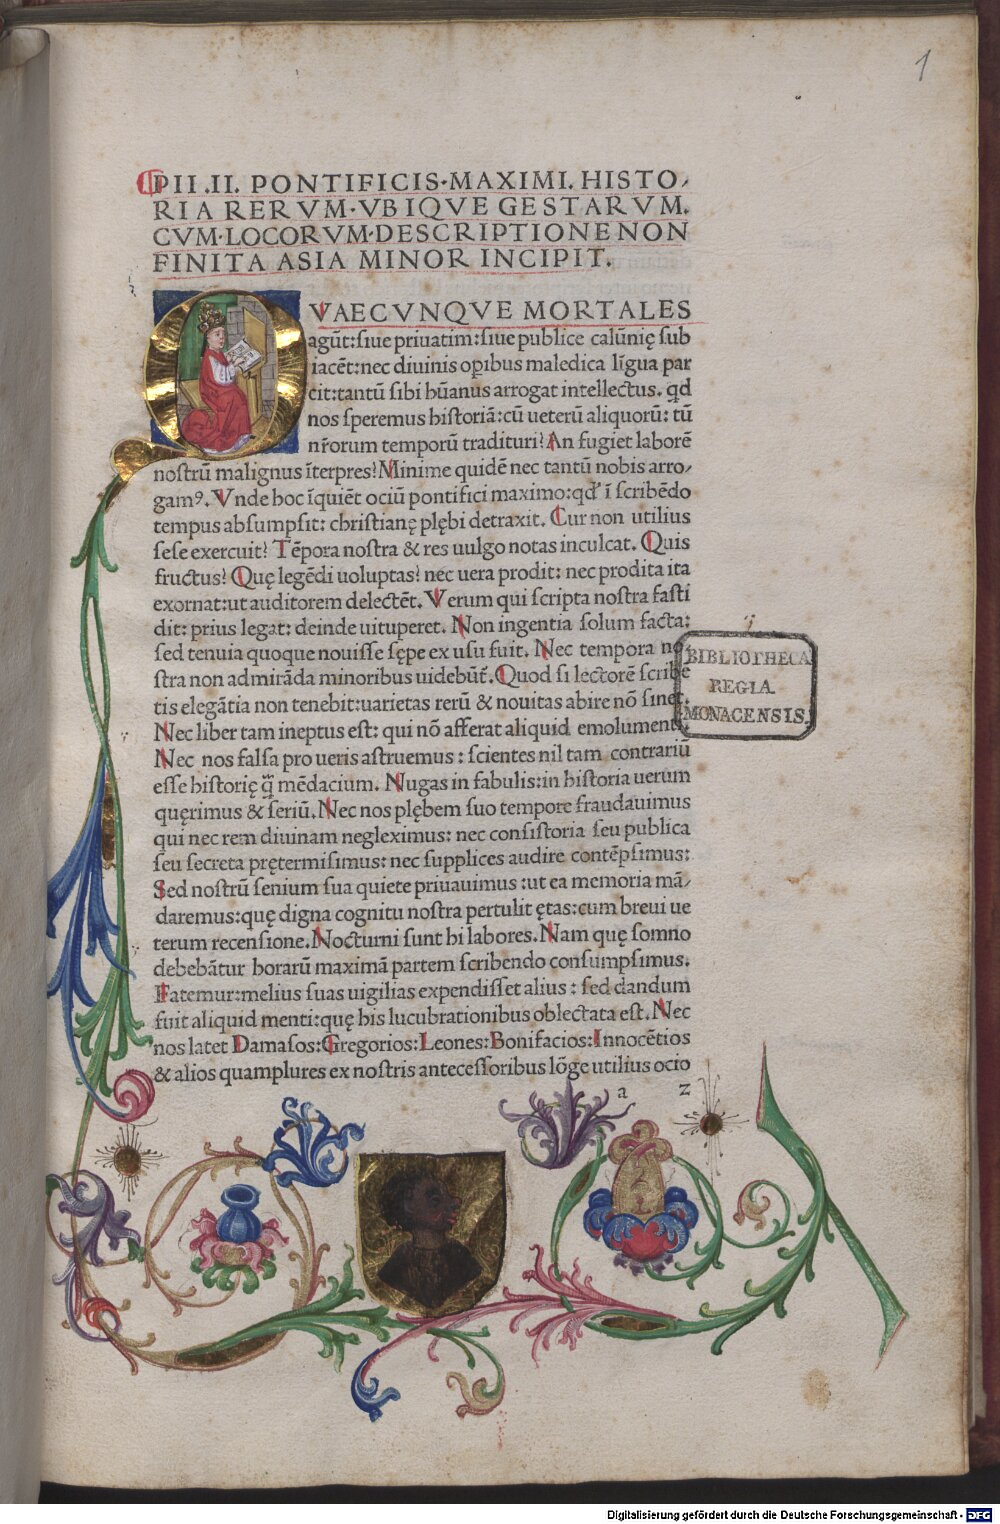 1
PII .II. PONTIFICIS·MAXIMI. HISTO/
RIA RERVM·VBIQVE GESTARVM.
CVM·LOCORVM·DESCRIPTIONE NON
FINITA ASIA MINOR INCIPIT.
QVAECVNQVE MORTALES
agūt: siue priuatim: siue publice calūnię sub
iacēt: nec diuinis opibus maledica līgua par
cit: tantū sibi hūanus arrogat intellectus. qd
nos speremus historiā: cū ueterū aliquorū: tū
nr̄orum temporū tradituri? An fugiet laborē
nostrū malignus īterpres? Minime quidē nec tantū nobis arro/
gamꝰ. Vnde hoc īquiēt ociū pontifici maximo: qd' ī scribēdo
tempus absumpsit: christianę plębi detraxit. Cur non utilius
sese exercuit? Tēpora nostra & res uulgo notas inculcat. Quis
fructus? Quę legēdi uoluptas? nec uera prodit: nec prodita ita
exornat: ut auditorem delectēt. Verum qui scripta nostra fasti
dit: prius legat: deinde uituperet. Non ingentia solum facta:
sed tenuia quoque nouisse sępe ex usu fuit. Nec tempora no
stra non admirāda minoribus uidebūt̄. Quod si lectorē scribē
tis elegātia non tenebit: uarietas rerū & nouitas abire nō sinet.
Nec liber tam ineptus est: qui nō afferat aliquid emolumenti.
Nec nos falsa pro ueris astruemus : scientes nil tam contrariū
esse historię q̄ mēdacium. Nugas in fabulis: in historia uerum
quęrimus & seriū. Nec nos plębem suo tempore fraudauimus
qui nec rem diuinam negleximus: nec consistoria seu publica
seu secreta prętermisimus: nec supplices audire contēpsimus:
Sed nostrū senium sua quiete priuauimus : ut ea memoria mā/
daremus: quę digna cognitu nostra pertulit ętas: cum breui ue
terum recensione. Nocturni sunt hi labores. Nam quę somno
debebātur horarū maximā partem scribendo consumpsimus.
Fatemur: melius suas uigilias expendisset alius : sed dandum
fuit aliquid menti: quę his lucubrationibus oblectata est. Nec
nos latet Damasos: Gregorios: Leones: Bonifacios: Innocētios
& alios quamplures ex nostris antecessoribus lōge utilius ocio
a 2
BIBLIOTHECA
REGIA
MONACENSIS.
Digitalisierung gefördert durch die Deutsche Forschungsgemeinschaft - DFG